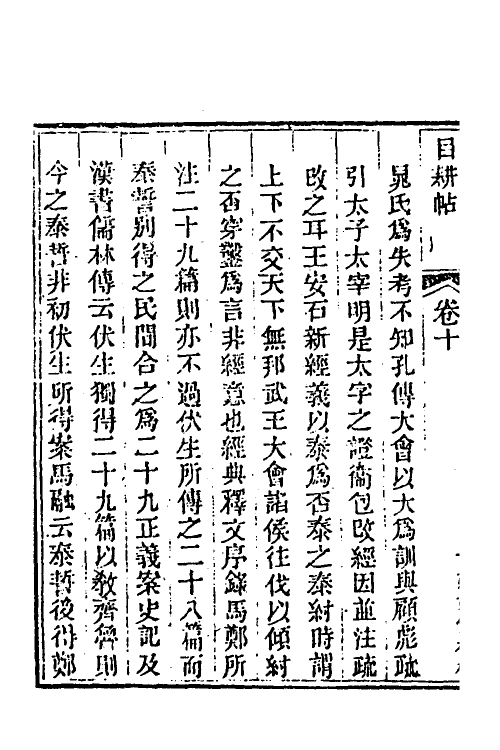 目耕帖　卷十
晁氏爲失考不知孔傳大會以大爲訓與顧彪耽
引太子太宰明是太字之證衞包改經因並注疏
改之耳王安石新經義以泰爲否泰之泰紂時謂
上下不交天下無邦武王大會諸侯往伐以傾紂
之否穿鑿爲言非經意也經典釋文序錄馬鄭所
注二十九篇則亦不過伏生所傳之二十八篇而
泰誓別得之民間合之爲二十九正義案史記及
漢書儒林傳云伏生獨得二十九篇以敎齊魯則
今之泰誓非初伏生所得案馬融云泰誓後得鄭